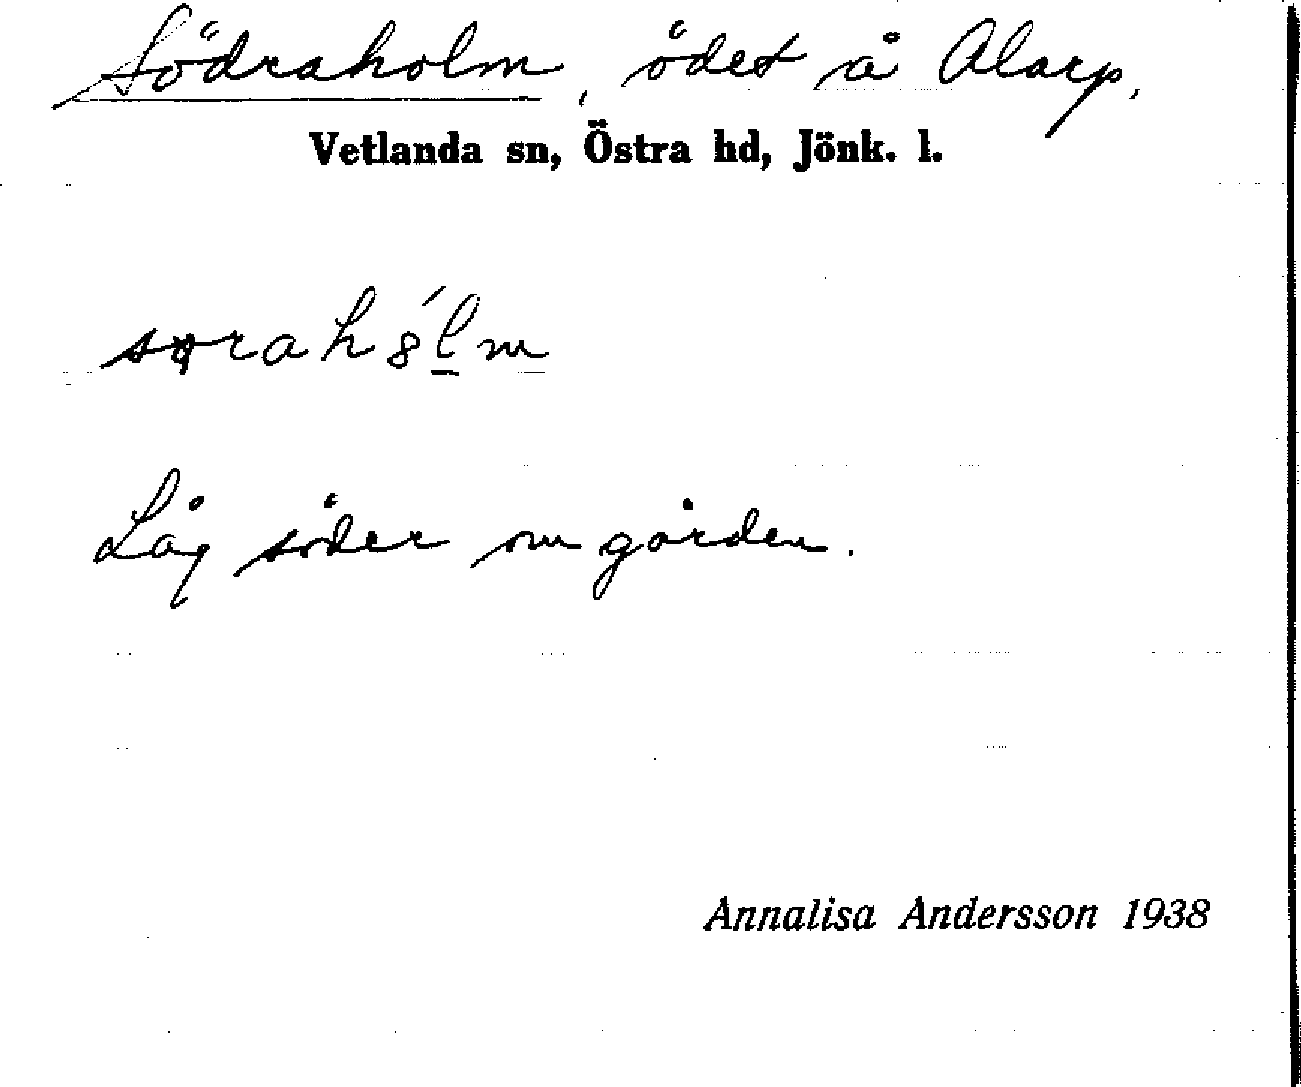 Södraholm, ödet å Alarp.
Vetlanda sn, Östra hd, Jönk. l.
Låg söder om gården.
Annalisa Andersson 1938